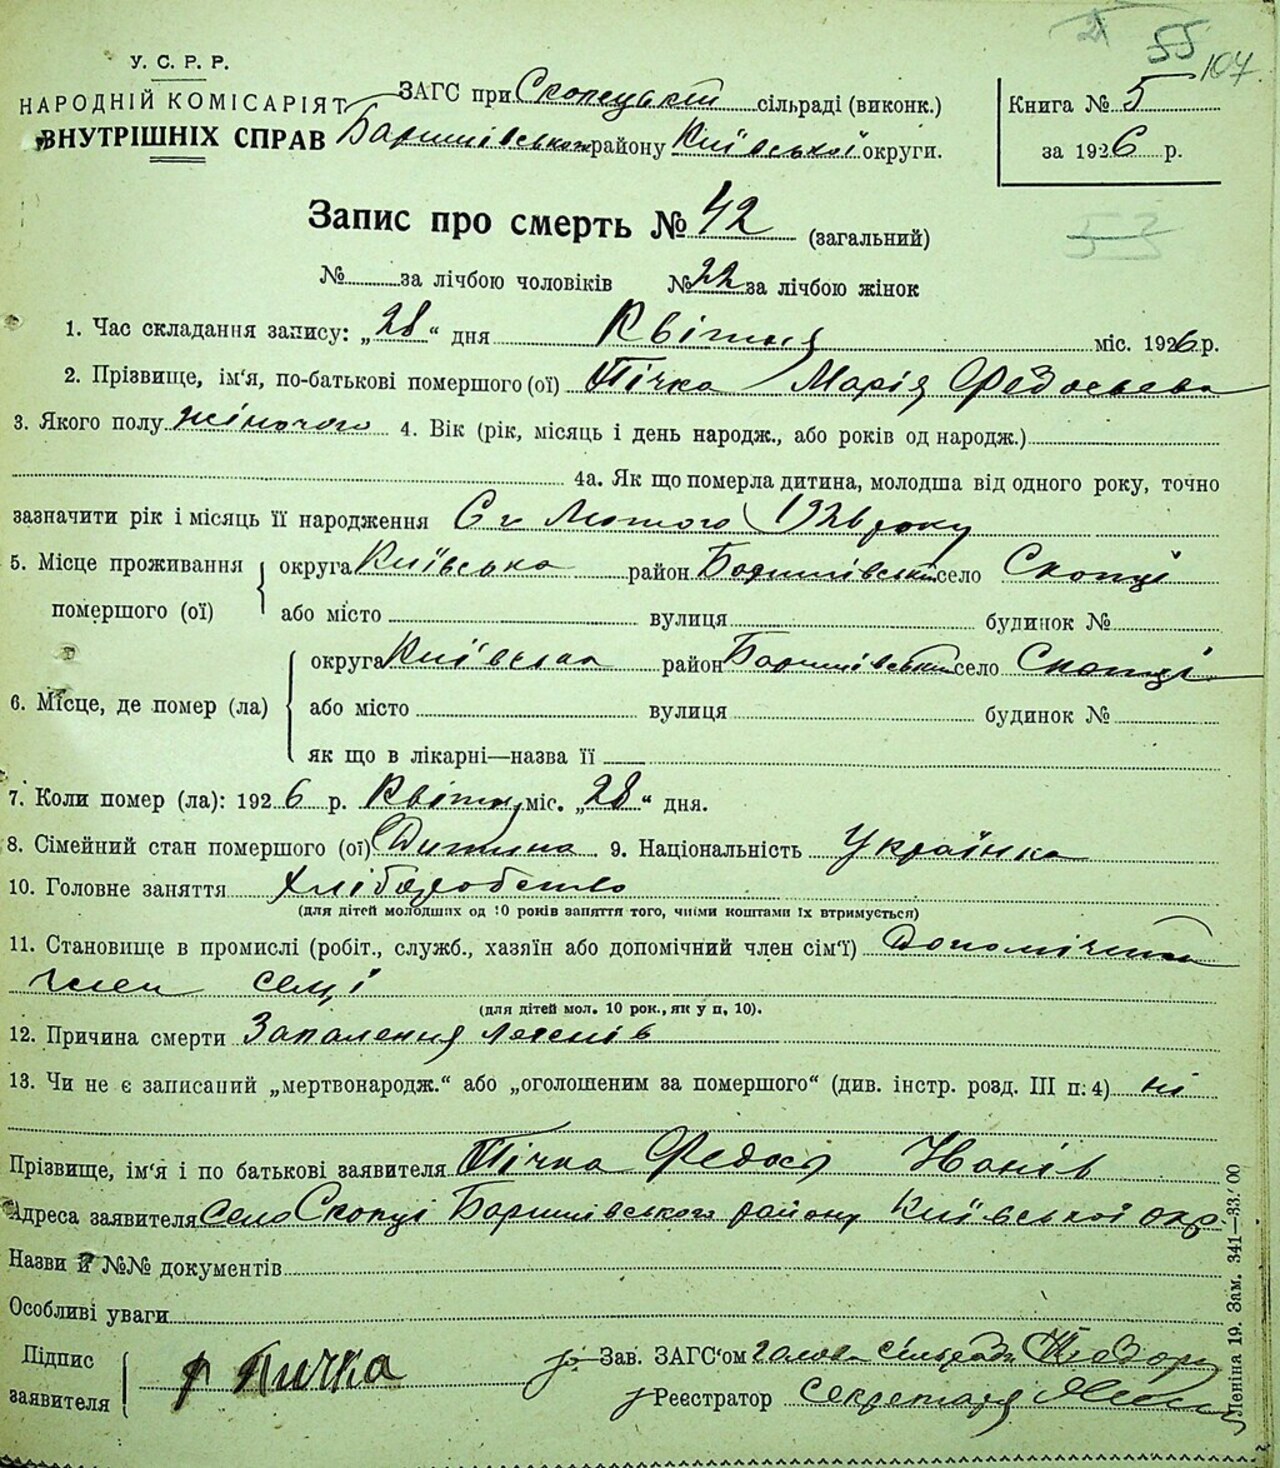 55 107
У. С. Р. Р.
НАРОДНІЙ КОМІСАРІЯТ
ВНУТРІШНІХ СПРАВ
ЗАГС при Скопецькій сільраді (виконк.)
Баришівського району Київської округи.
Книга № 5
за 1926 р.
Запис про смерть № 42 (загальний)
53
№ за лічбою чоловіків № 22 за лічбою жінок
1. Час складання запису: „28“ дня Квітня міс. 1926 р.
2. Прізвище, ім‘я, по-батькові помершого (ої) Пічка Марія Федосьева
3. Якого полу жіночого 4. Вік (рік, місяць і день народж., або років од народж.)
4а. Як що померла дитина, молодша від одного року, точно
зазначити рік і місяць її народження 6го Лютого 1926 року
5. Місце проживання помершого (ої) округа Київська район Баришівський село Скопці
або місто вулиця будинок №
6. Місце, де помер (ла) округа Київська район Баришівський село Скопці
або місто вулиця будинок №
як що в лікарні—назва її
7. Коли помер (ла): 1926 р. Квітня міс. „28“ дня.
8. Сімейний стан помершого (ої) Дитина 9. Національність Українка
10. Головне заняття Хліборобство
(для дітей молодших од 10 років заняття того, чиїми коштами їх втримується)
11. Становище в промислі (робіт., служб., хазяїн або допомічний член сім‘ї) Допомічний
член семї
(для дітей мол. 10 рок., як у п, 10).
12. Причина смерти Запалення легенів
13. Чи не є записаний „мертвонародж.“ або „оголошеним за помершого“ (див. інстр. розд. III п. 4) ні
Прізвище, ім‘я і по батькові заявителя Пічка Федось Іванів
Адреса заявителя село Скопці Баришівського району Київської окр.
Назви й №№ документів
Особливі уваги
Підпис заявителя Ф Пичка
Зав. ЗАГС‘ом голова сільради
Реєстратор Секретарь
Леніна 19. Зам. 341—33.000